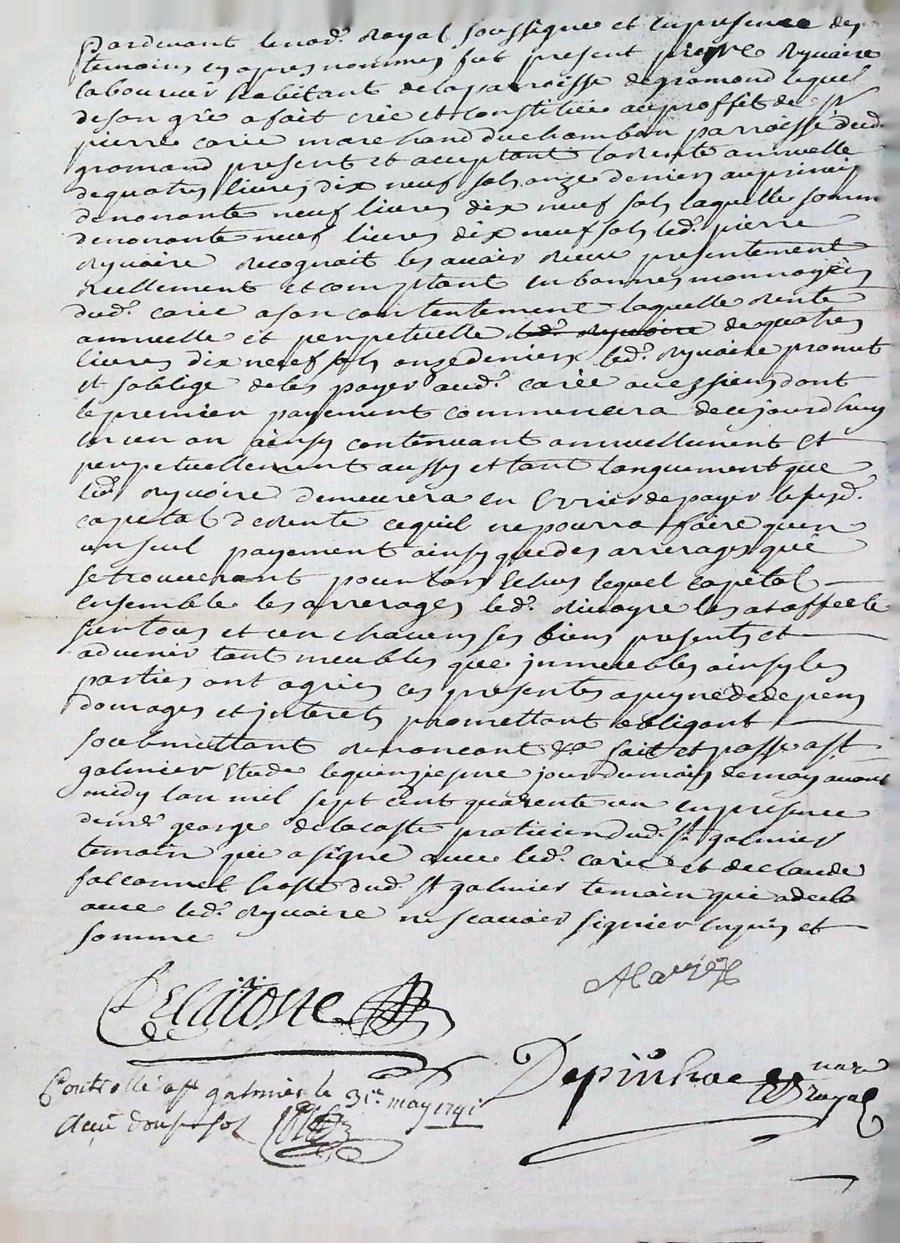 Pardevant le not.e Royal soussigne et en presence des
temoins cy apres nommes fut present pierre Ryvoire
laboureur habitant de la parroisse de gramond lequel
de son gre a fait cree et constitue au proffit de Sr
pierre carie marchand du chambon parroisse dud.
gramond present et acceptant la rente annuelle
de quatres livres dix neuf sols onze deniers au principal
de nonante neuf livres dix neuf sols laquelle somme
de nonante neuf livres dix neuf sols led. pierre
Ryvoire recognoit les avoir receu presentement
reellement et comptant en bonnes monnoyes
dud. carie a son contentement laquelle rente
annuelle et perpetuelle led. Ryvoire de quatres
livres dix neuf sols onze deniers led. Ryvoire promet
et soblige de les payer aud. carie ou es siens dont
le premier payement commencera de ce jourdhuy
en un an ainsy continuant annuellement et
perpetuellement aussy et tant longuement que
led. Ryvoire demeurera en Errier de payer le susd.
capital de rente ce quil ne pourra faire quen
un seul payement ainsy que des arrerages qui
se trouveront pour lors Echus lequel capital
ensemble les arrerages led. Rivoyre les at affecte
sur tous et un chacuns ses biens presents et
advenir tant meubles que jmmeubles ainsy les
parties ont agrees ces presentes a peyne de depens
domages et jnterets promettant obligant
soubmettant renoncant &a fait et passe a st
galmier Etude le quenzieme jour du mois de may avant
midy lan mil sept cent quarente un en presence
de me george delacoste praticien dud. st galmier
temoin qui a signe avec led. carie et de claude
falconnet hoste dud. st galmier temoin qui a declare
avec led. Ryvoire ne scavoir signier enquis et
somme
Delacoste
Controllé a st galmier le 31e may 1741
Reçu douse sol
not.re
royal